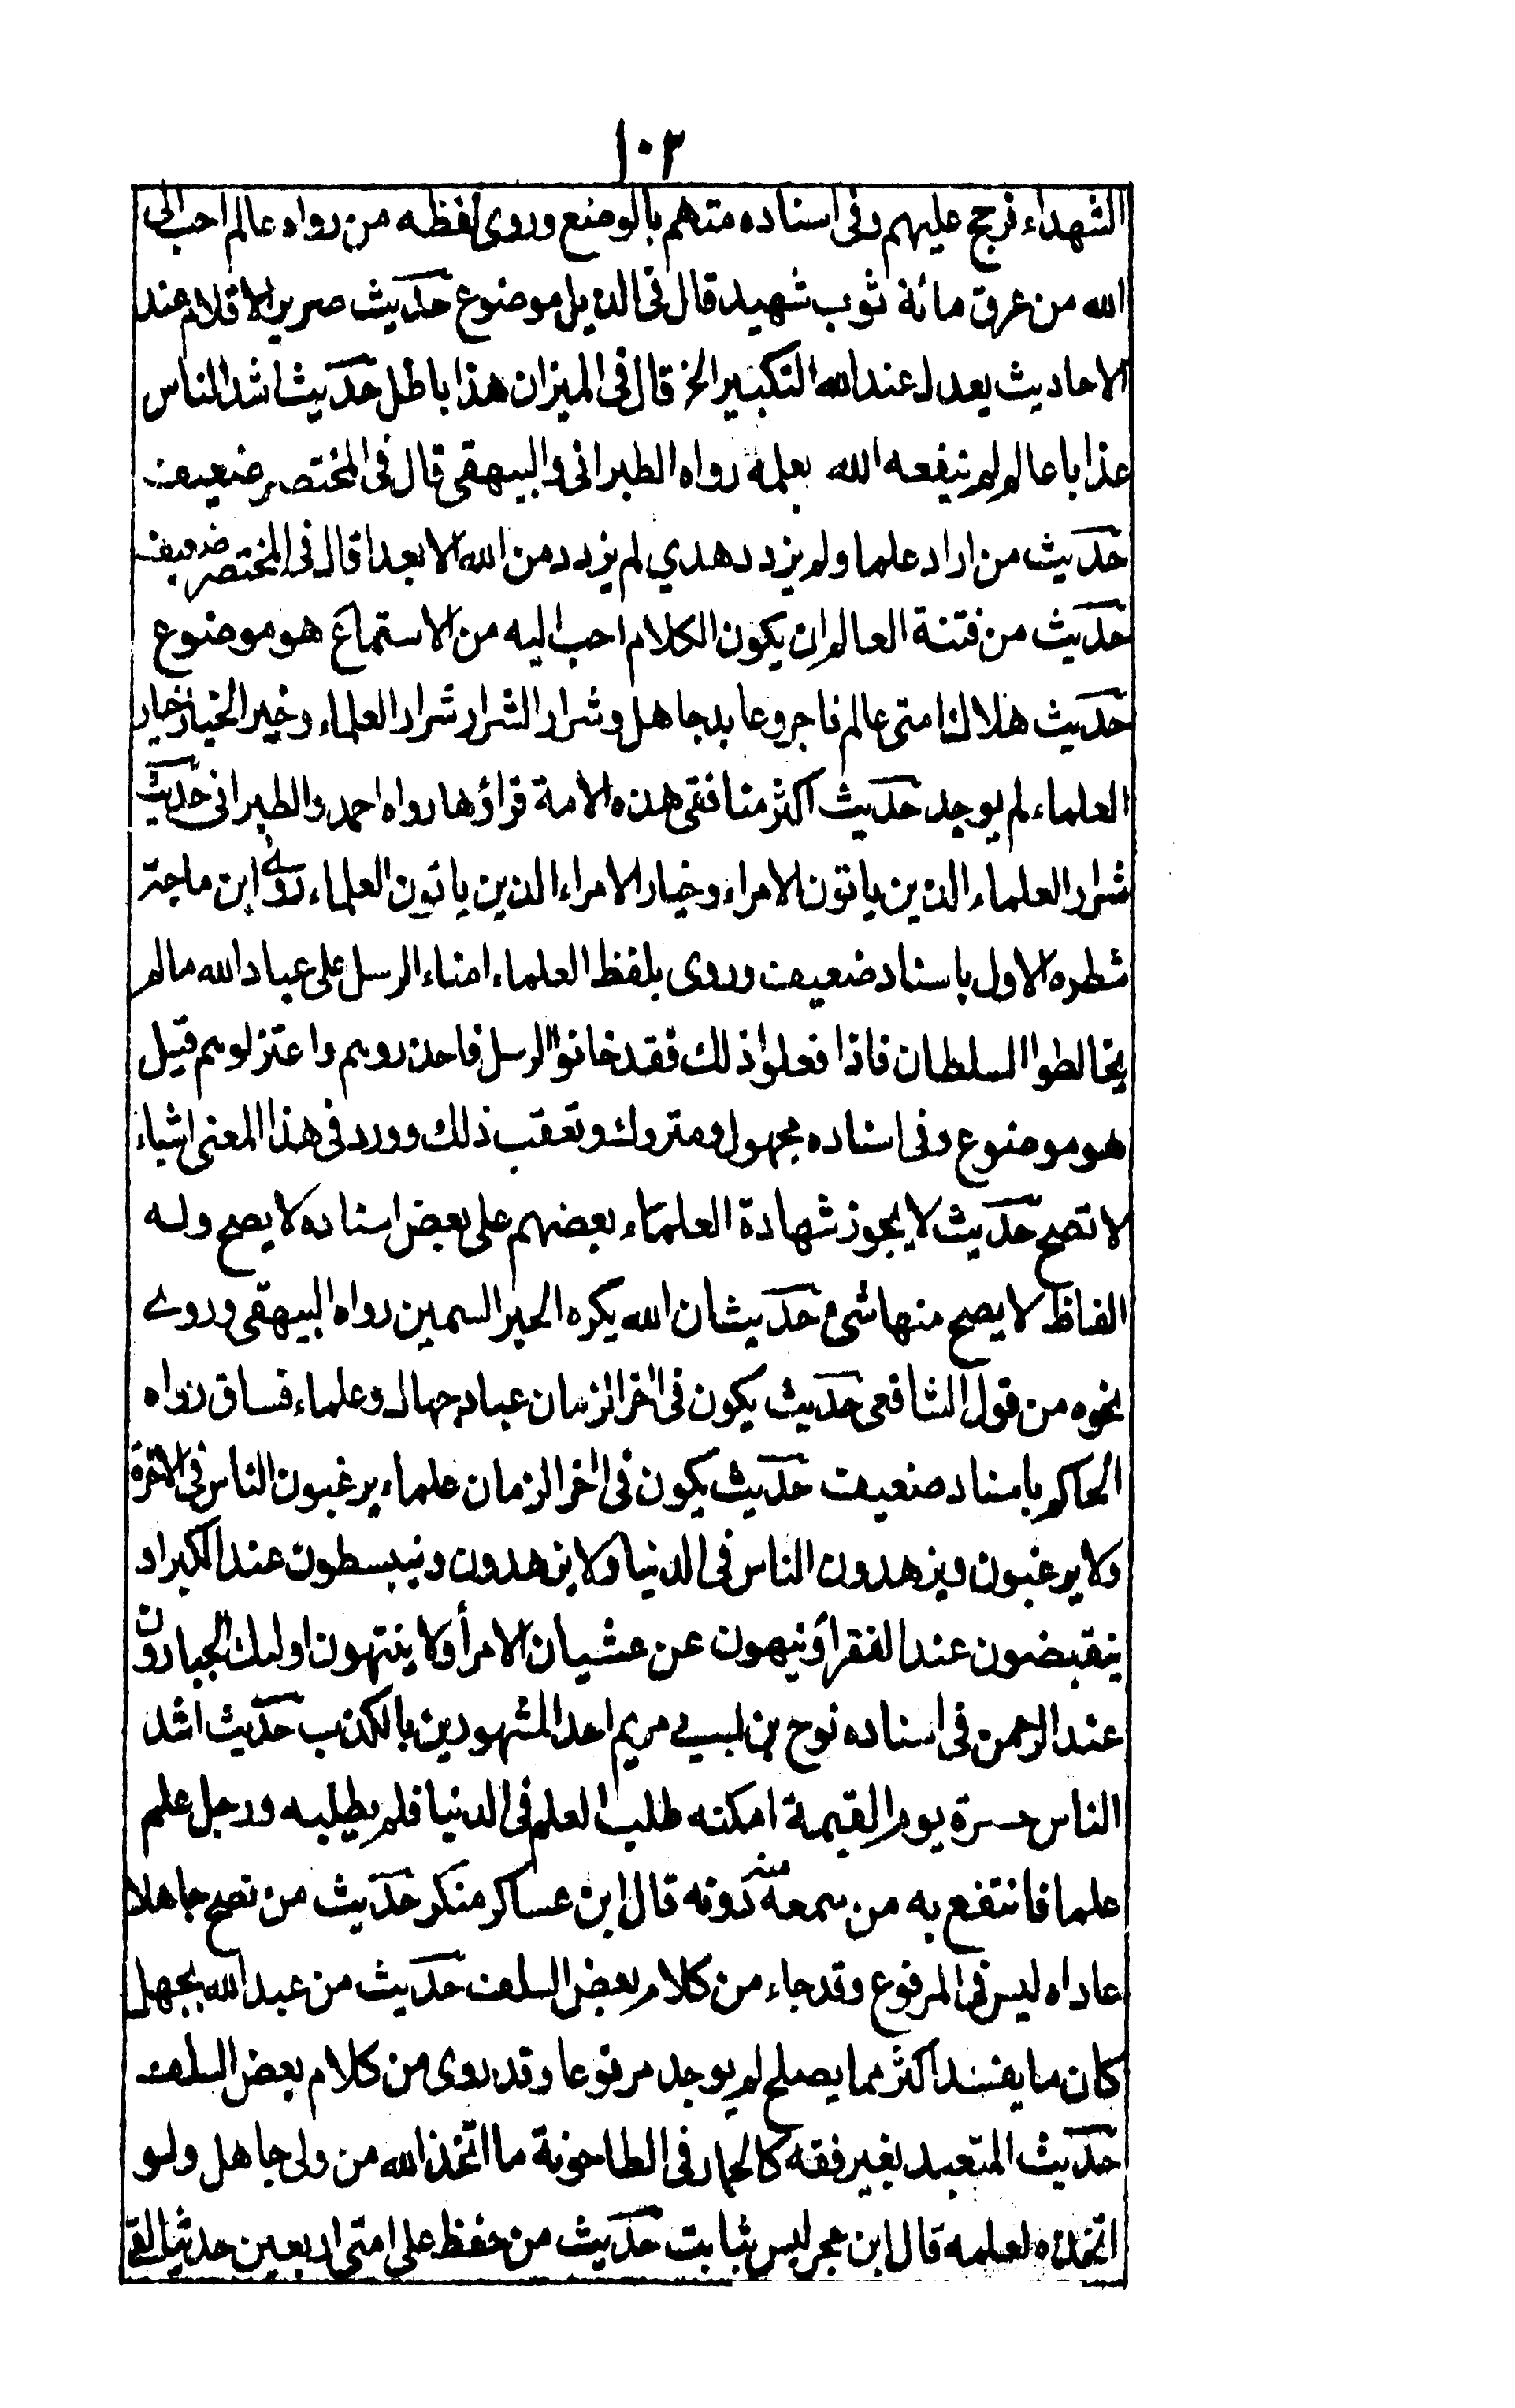 ١٠٣
الشهداء فرجح عليهم وفى اسناده متهم بالوضع وروى لفظه من رواه عالم احب الى
الله من عرق مائة ثوب شهيد قال فى الذيل موضوع حديث صرير الاقلام عند
الاحاديث يعدل عند الله التكبير الخ قال فى الميزان هذا باطل حديث اشد الناس
عذابا عالم لم ينفعه الله بعلمه رواه الطبرانى والبيهقى قال فى المختصر ضعيف
حديث من اراد علما ولم يزدد هدي لم يزدد من الله الا بعدا قال فى المختصر ضعيف
حديث من فتنة العالم ان يكون الكلام احب اليه من الاستماع هو موضوع
حديث هلاك امتى عالم فاجر وعابد جاهل وشرار الشرار شرار العلماء وخير الخيار خيار
العلماء لم يوجد حديث اكثر منافقى هذه الامة قراؤها رواه احمد والطبرانى حديث
شرار العلماء الذين ياتون الامراء وخيار الامراء الذين ياتون العلماء رواه ابن ماجة
شطره الاول باسناد ضعيف وروى بلفظ العلماء امناء الرسل على عباد الله مالم
يخالطوا السلطان فاذا فعلوا ذلك فقد خانوا الرسل فاحذروهم واعتزلوهم قيل
هو موضوع وفى اسناده مجهول ومتروك وتعقب ذلك وورد فى هذا المعنى اشياء
لا تصح حديث لا يجوز شهادة العلماء بعضهم على بعض اسناده لا يصح وله
الفاظ لا يصح منها شئ حديث ان الله يكره الحبر السمين رواه البيهقى وروے
نحوه من قول الشافعى حديث يكون فى اخر الزمان عباد جهال وعلماء فساق رواه
الحاكم باسناد ضعيف حديث يكون فى اخر الزمان علماء يرغبون الناس فى الاخرة
ولا يرغبون ويزهدون الناس فى الدنيا ولا يزهدون وينبسطون عند الكبراء و
ينقبضون عند الفقرأ وينهون عن غشيان الامرأ ولا ينتهون اولئك الجبارون
عند الرحمن فى اسناده نوح بن ابى مريم احد المشهورين بالكذب حديث اشد
الناس حسرة يوم القيمة امكنه طلب العلم فى الدنيا فلم يطلبه ورجل علم
علما فانتفع به من سمعه منه دونه قال ابن عساكر منكر حديث من نصح جاهلا
عاداه ليس فى المرفوع وقد جاء من كلام بعض السلف حديث من عبد الله بجهل
كان ما يفسد اكثر مما يصلح لم يوجد مرفوعا وقد روى من كلام بعض السلف
حديث المتعبد بغير فقه كالحمار فى الطاحونة ما اتخذ الله من ولى جاهل ولو
اتخذه لعلمه قال ابن حجر ليس بثابت حديث من حفظ على امتى اربعين حديثا لقى